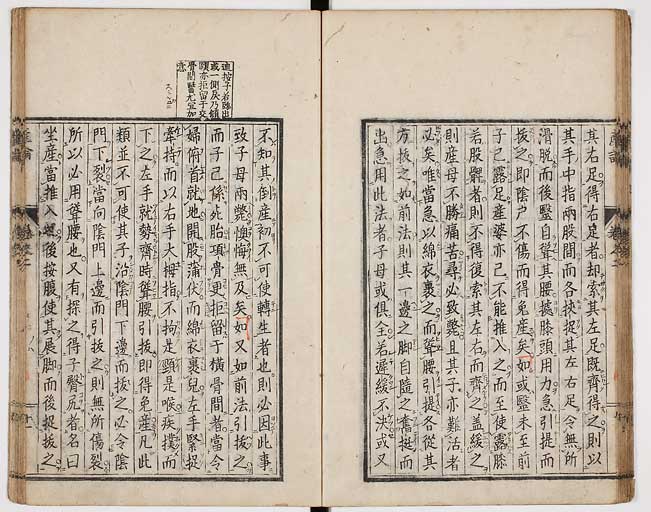 其右足得右足者却索其左足既齊得之則以
其手中指兩股間而各挾捉其左右足令無所
滑脫而後毉自聳其腰撼膝頭用力急引提而
拔之即陰户不傷而得免産矣如或毉未至前
子已露足産婆亦已不能推入之而至使露膝
若股臋者則不得復索其左右而齊之盖緩
則産母不勝痛苦尋必致斃且其子亦難活者
必矣唯當急以綿衣裹之而聳腰引提各從其
方拔之如前法則其一邊之脚自隨之奮挺而
出急用此法者子母或俱全若遲緩不決或又
不知其倒産初不可使轉生者也則必因此事
致子母兩斃懊悔無及矣如又如前法引拔之
而子已係死胎項骨更拒留于橫骨間者當令
婦俯首就地開股蒲伏而綿衣裹兒左手緊捉
牽持而以右手大拇指不拘是頸是喉疾撲而
下之左手就勢齊時聳腰引拔即得免産凡此
類並不可使其子沿陰門下邊而拔之必令陰
門下裂當向陰門上邊而引拔之則無所傷裂
所以必用聳腰也又有探之得子臀尻者名曰
坐産當推入之後按腹使其展脚而後捉拔之
連按子若露出
或一側反乃傾
頤亦拒留于交
骨間毉尤宜加
意